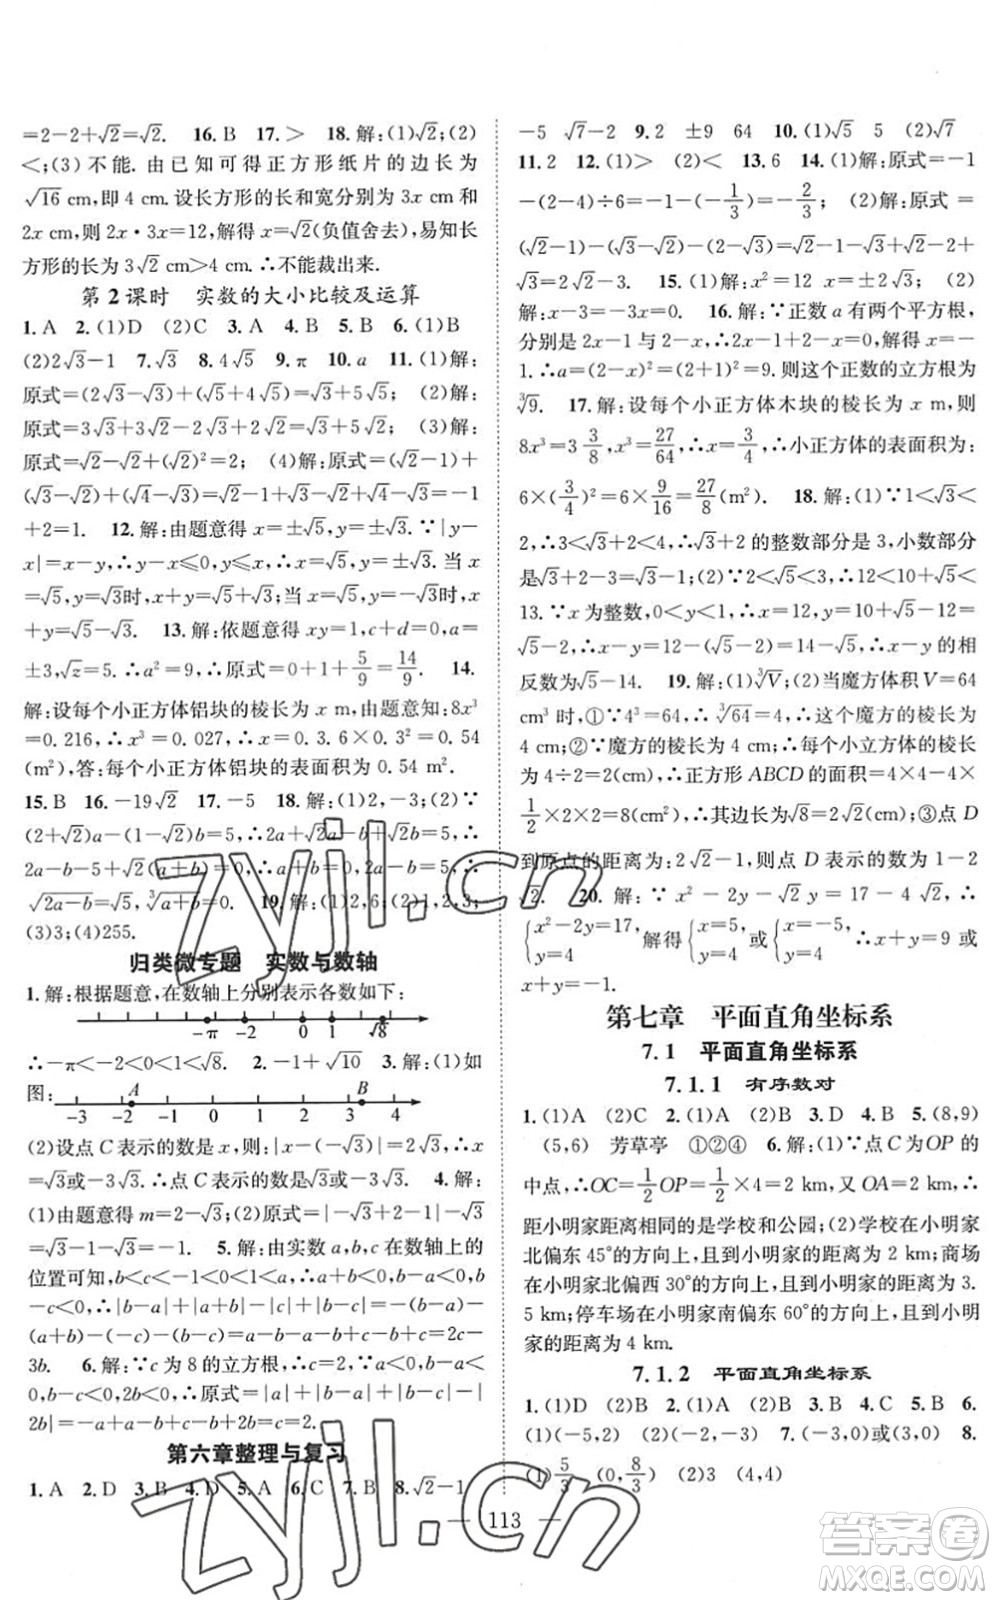 =2-2+√2=√2. 16. B 17. > 18. 解:(1)√2;(2)
<;(3)不能. 由已知可得正方形纸片的边长为
√16 cm,即 4 cm. 设长方形的长和宽分别为 3x cm 和
2x cm,则 2x·3x=12,解得 x=√2(负值舍去),易知长
方形的长为 3√2 cm>4 cm. ∴不能裁出来.
第 2 课时 实数的大小比较及运算
1. A 2. (1)D (2)C 3. A 4. B 5. B 6. (1)B
(2)2√3-1 7. √3 8. 4√5 9. π 10. a 11. (1)解:
原式=(2√3-√3)+(√5+4√5)=√3+5√5; (2)解:
原式=3√3+3√2-2√3+2√2=√3+5√2; (3)解:
原式=√2×√2=(√2)²=2; (4)解:原式=(√2-1)+
(√3-√2)+(√4-√3)=√2-1+√3-√2+√4-√3=-1
+2=1. 12. 解:由题意得 x=±√5,y=±√3. ∵|y-
x|=x-y,∴y-x≤0,∴y≤x,∴x=√5,y=±√3. 当 x
=√5,y=√3时,x+y=√5+√3;当 x=√5,y=-√3时,x
+y=√5-√3. 13. 解:依题意得 xy=1,c+d=0,a=
±3,√z=5. ∴a²=9,∴原式=0+1+5/9=14/9. 14.
解:设每个小正方体铝块的棱长为 x m,由题意知:8x³
=0.216,∴x³=0.027,∴x=0.3. 6×0.3²=0.54
(m²),答:每个小正方体铝块的表面积为 0.54 m².
15. B 16. -19√2 17. -5 18. 解:(1)2,-3;(2)∵
(2+√2)a-(1-√2)b=5,∴2a+√2a-b+√2b=5,∴
2a-b-5+√2(a+b)=0,∴a+b=0,2a-b=5,∴
√2a-b=√5,³√a+b=0. 19. 解:(1)2,6;(2)1,2,3;
(3)3;(4)255.
归类微专题 实数与数轴
1. 解:根据题意,在数轴上分别表示各数如下:
-π -2 0 1 √8
∴-π<-2<0<1<√8. 2. -1+√10 3. (1)如
图: A B
-3 -2 -1 0 1 2 3 4
(2)设点 C 表示的数是 x,则:|x-(-√3)|=2√3,∴x
=√3或-3√3. ∴点 C 表示的数是√3或-3√3. 4. 解:
(1)由题意得 m=2-√3;(2)原式=|-√3+2|-|√3
-√3-1|=2-√3-1=1-√3. 5. 解:由实数 a,b,c 在数轴上的
位置可知,b<a<0<c,∴b-a<0,a-c<0,a+b<0,
b-c<0,∴|b-a|-|a-c|+|a+b|-|b-c|=-(b-a)
-(a+b)-(-b+c)=-b-a-b+c=2c-
3b. 6. 解:∵c 为 8 的立方根,∴c=2,∵b<a<
0,∴原式=|a|+|b|+|c|-|
2b|=-a-b+c+2b=c=2.
第六章整理与复习
1. A 2. D 3. B 4. D 5. A 6. C 7. B 8. √2-1
-5 √7-2 9. 2 ±9 64 10. (1)√5 5 (2)√7
11. 2 12. (1)> (2)< 13. 6 14. (1)解:原式=-1
-(2-4)÷6=-1-(-1/3)=-2/3; (2)解:原式=
(√2-1)-(√3-√2)-(2-√3)=√2-1-√3+√2-2+
√3=2√2-3. 15. (1)解:x²=12 x=±√12 (2)
解:x-3=-3 x=0. 16. 解:∵正数 a 有两个平方根,
分别是 2x-1 与 2-x,∴2x-1+2-x=0. 解得 x=-
1. ∴a=(2-x)²=(2+1)²=9. 则这个正数的立方根为
³√9. 17. 解:设每个小正方体木块的棱长为 x m,则
8x³=3 3/8,x³=27/64,∴x=3/4,∴小正方体的表面积为:
6×(3/4)²=6×9/16=27/8(m²). 18. 解:(1)∵1<√3<
2,∴3<√3+2<4,∴√3+2 的整数部分是 3,小数部分
是√3+2-3=√3-1;(2)∵2<√5<3,∴12<10+√5<
13. ∵x 为整数,0<y<1,∴x=12,y=10+√5-12=
√5-2,∴x-y=12-(√5-2)=14-√5,∴x-y 的相
反数为√5-14. 19. 解:(1)³√V;(2)当魔方体积 V=64
cm³ 时,①∵4³=64,∴³√64=4,∴这个魔方的棱长为
4 cm;②∵魔方的棱长为 4 cm,∴每个小立方体的棱长
为 4÷2=2(cm),∴正方形 ABCD 的面积=4×4-4×
1/2×2×2=8(cm²),∴其边长为√8=2√2(cm);③点 D
到原点的距离为:2√2-1,则点 D 表示的数为 1-2
√2. 20. 解:∵x²-2y-√2y=17-4√2,∴
{x²-2y=17 y=4 解得{x=5 y=4 或{x=-5 y=4 ∴x+y=9 或
x+y=-1.
第七章 平面直角坐标系
7.1 平面直角坐标系
7.1.1 有序数对
1. (1)A (2)C 2. (1)A (2)B 3. D 4. A 5. (8,9)
(5,6) 芳草亭 ①②④ 6. 解:(1)∵点 C 为 OP 的
中点,∴OC=1/2OP=1/2×4=2 km,又 OA=2 km,∴
距小明家距离相同的是学校和公园;(2)学校在小明家
北偏东 45°的方向上,且到小明家的距离为 2 km;商场
在小明家北偏西 30°的方向上,且到小明家的距离为 3.
5 km;停车场在小明家南偏东 60°的方向上,且到小明
家的距离为 4 km.
7.1.2 平面直角坐标系
1. (1)D (2)B 2. (1)D (2)B 3. B 4. C 5. A 6.
(1)(-5,2) (2)(-2,-2) 7. (-3,0)或(3,0) 8.
(1)5/3 (0,8/3) (2)3 (4,4)
113
zyjl.cn
zyjl.cn
答案圈
MXQE.COM